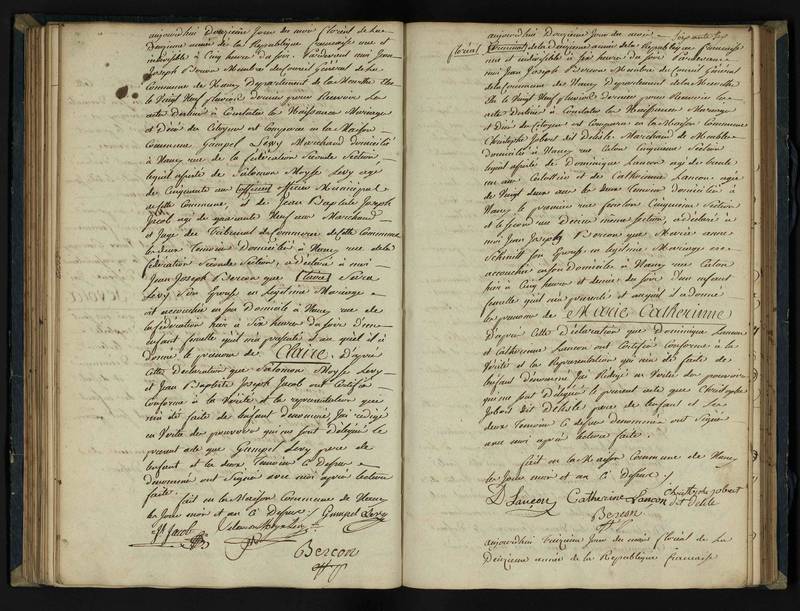 aujourdhui Douzieme Jour du mois floréal de La
Deuzieme année de la Republique francaise une et
indivisible à Cinq heure du soir. Pardevant moi Jean
Joseph Berçon Membre du Conseil Général de La
Commune de Nancy Departement de la Meurthe Elu
le Vingt Neuf dernier pour Recevoir Les
acte Destiné à Constater La Naissance Mariage
et Décé des Citoyens est Comparu en la Maison
Commune Gumpel Levy Marchand domicilié
à Nancy rue de la fédération Seconde Section,
lequel assisté de Salomon Moyse Levy agé
de Cinquante ans officier Municipal
de cette Commune, et de Jean Baptiste Joseph
Jacob agé de quarante Neuf ans Marchand
et Juge du Tribunal de Commerce de cette Commune
les deux Temoins Domiciliés à Nancy rue de la
fédération Seconde Section, a déclaré à moi
Jean Joseph Berçon que
Levy Son Epouse en Legitime Mariage
est accouchée en son Domicile à Nancy rue de
la fédération hier à Six heure du soir D'une
enfant femelle qu'il m'a presenté et au quel il a
Donné le prenom de Claire. D'apres
Cette Declaration que Salomon Moyse Levy
et Jean Baptiste Joseph Jacob ont Certifié
Conforme à la Verité et la representation qui
m'a été faite de l'enfant dénommé J'ai redigé
en Vertu des pouvoirs qui me sont délégué le
present acte que Gumpel Levy pere de
l'enfant et les deux Temoins Ci dessus
denommé ont Signé avec moi après lecture
faite.
fait en la Maison Commune de Nancy
les Jours mois et an Ci dessus./. Gumpel Levy
Jb Jacob
Berçon
aujourdhui Douzieme Jour du mois
floréal de la Deuzieme année de la Republique francaise
une et indivisible à Six heure du soir. Pardevant
moi Jean Joseph Berçon Membre du Conseil Général
de la Commune de Nancy Departement de la Meurthe
Elu le Vingt Neuf dernier pour Recevoir les
acte Destiné à Constater les Naissances Mariage
et Décé des Citoyens est Comparu en la Maison Commune
Christophe Jobart dit Delisle Marchand de Meuble
Domicilié à Nancy rue Calon Cinquieme Section
lequel assisté de Dominique Lancon agé de trente
un ans et de Catherine Lancon agée
de Vingt deux ans les deux Temoins domicilié à
Nancy le premier rue Cinquieme Section
et le second rue même section, a déclaré à
moi Jean Joseph Berçon que Marie anne
Schmitt Son Epouse en legitime Mariage est
accouchée en son Domicile à Nancy rue Calon
hier à Cinq heure et demie du soir D'un enfant
femelle qu'il m'a presenté et auquel il a donné
les prenoms de Marie Catherinne
D'après Cette Déclaration que Dominique Lancon
et Catherine Lancon ont Certifiée Conforme à la
Verité et la Representation qui m'a été faite de
l'enfant dénommé J'ai Rédigé en Vertu des pouvoirs
qui me sont délégué le present acte que Christophe
Jobart dit Delisle pere de l'enfant et les
deux Temoins Ci dessus denommé ont Signé
avec moi après lecture faite.
fait en la Maison Commune de Nancy
les Jours mois et an Ci dessus./.
D Lançon Catherine Lançon Christophe Jobart
dit delile
Berçon
aujourdhui Treizieme Jour du mois floréal de La
Deuzieme année de la Republique francaise